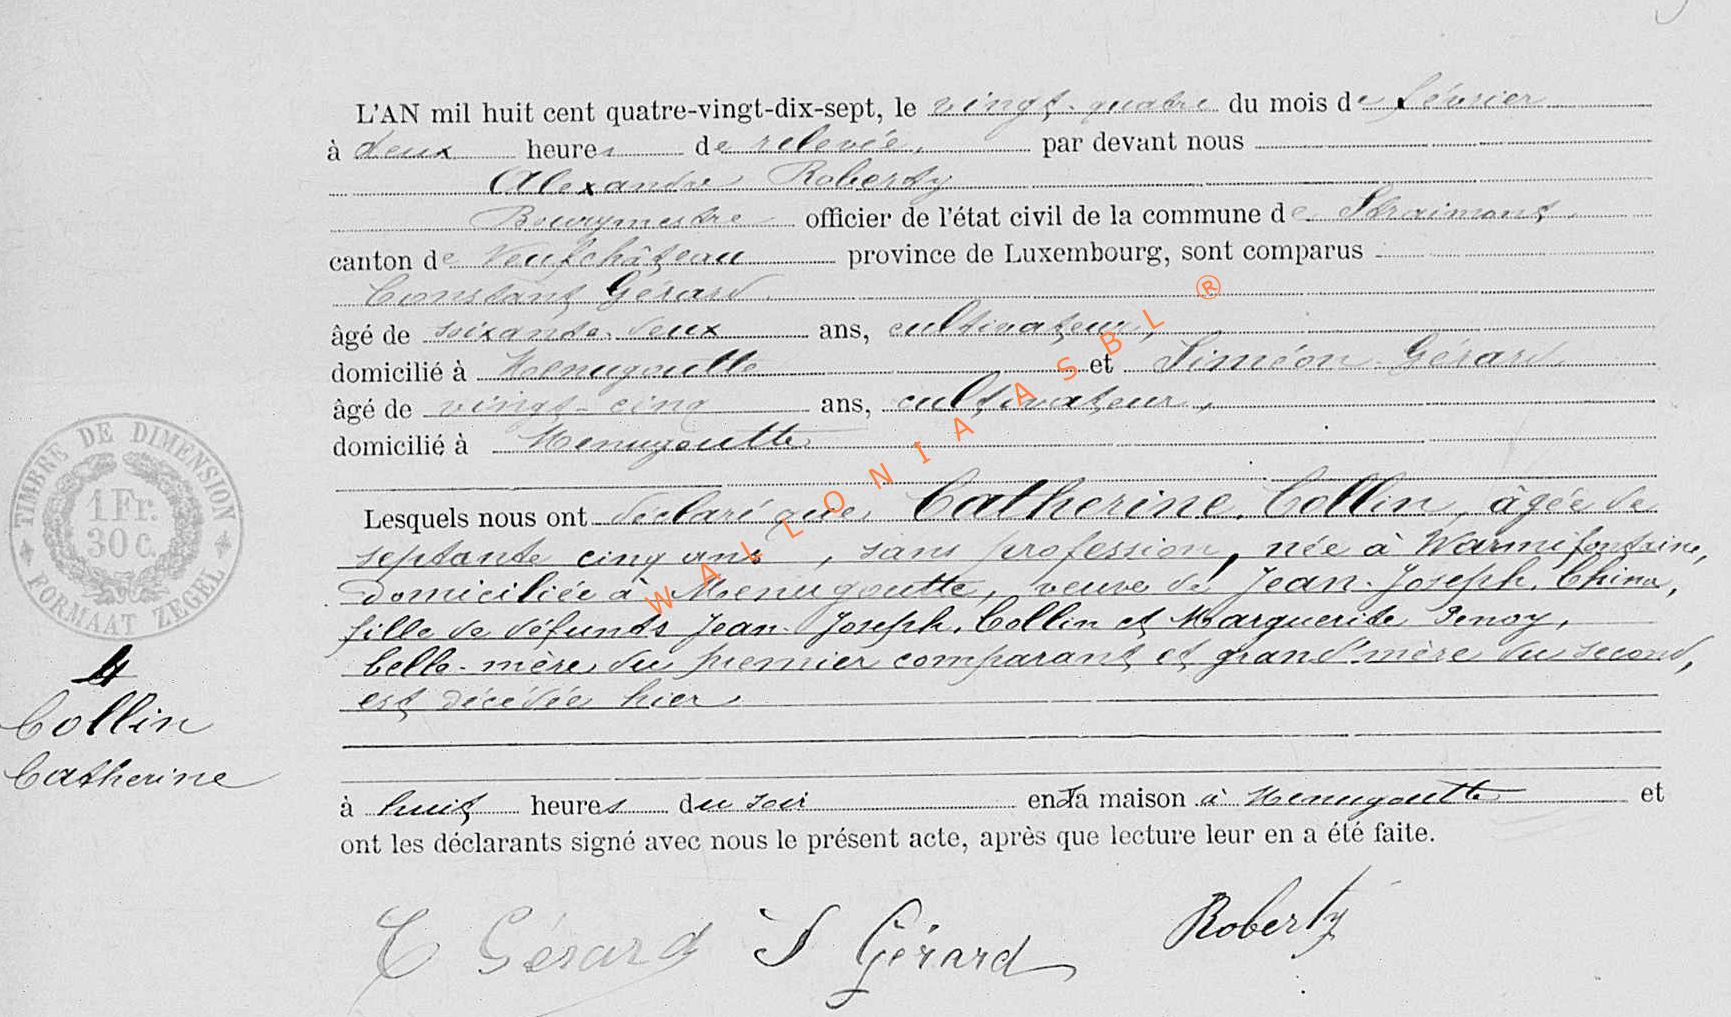 L'AN mil huit cent quatre-vingt-dix-sept, le vingt-quatre du mois de février
à deux heures de relevée, par devant nous
Alexandre Roberty
Bourgmestre officier de l'état civil de la commune de Straimont,
canton de Neufchâteau province de Luxembourg, sont comparus
Constant Gérard,
âgé de soixante-deux ans, cultivateur,
domicilié à Menugoutte et Siméon Gérard
âgé de vingt-cinq ans, cultivateur,
domicilié à Menugoutte
Lesquels nous ont déclaré que Catherine Collin, âgée de
septante cinq ans, sans profession, née à Warmifontaine,
domiciliée à Menugoutte, veuve de Jean-Joseph China,
fille de défunts Jean-Joseph Collin et Marguerite Penoy,
belle-mère du premier comparant et grand'mère du second,
est décédée hier
à huit heures du soir en sa maison à Menugoutte et
ont les déclarants signé avec nous le présent acte, après que lecture leur en a été faite.
C Gérard S Gérard Roberty
TIMBRE DE DIMENSION
1 Fr.
30 C.
FORMAAT ZEGEL
4
Collin
Catherine
WALLONIA ASBL ®